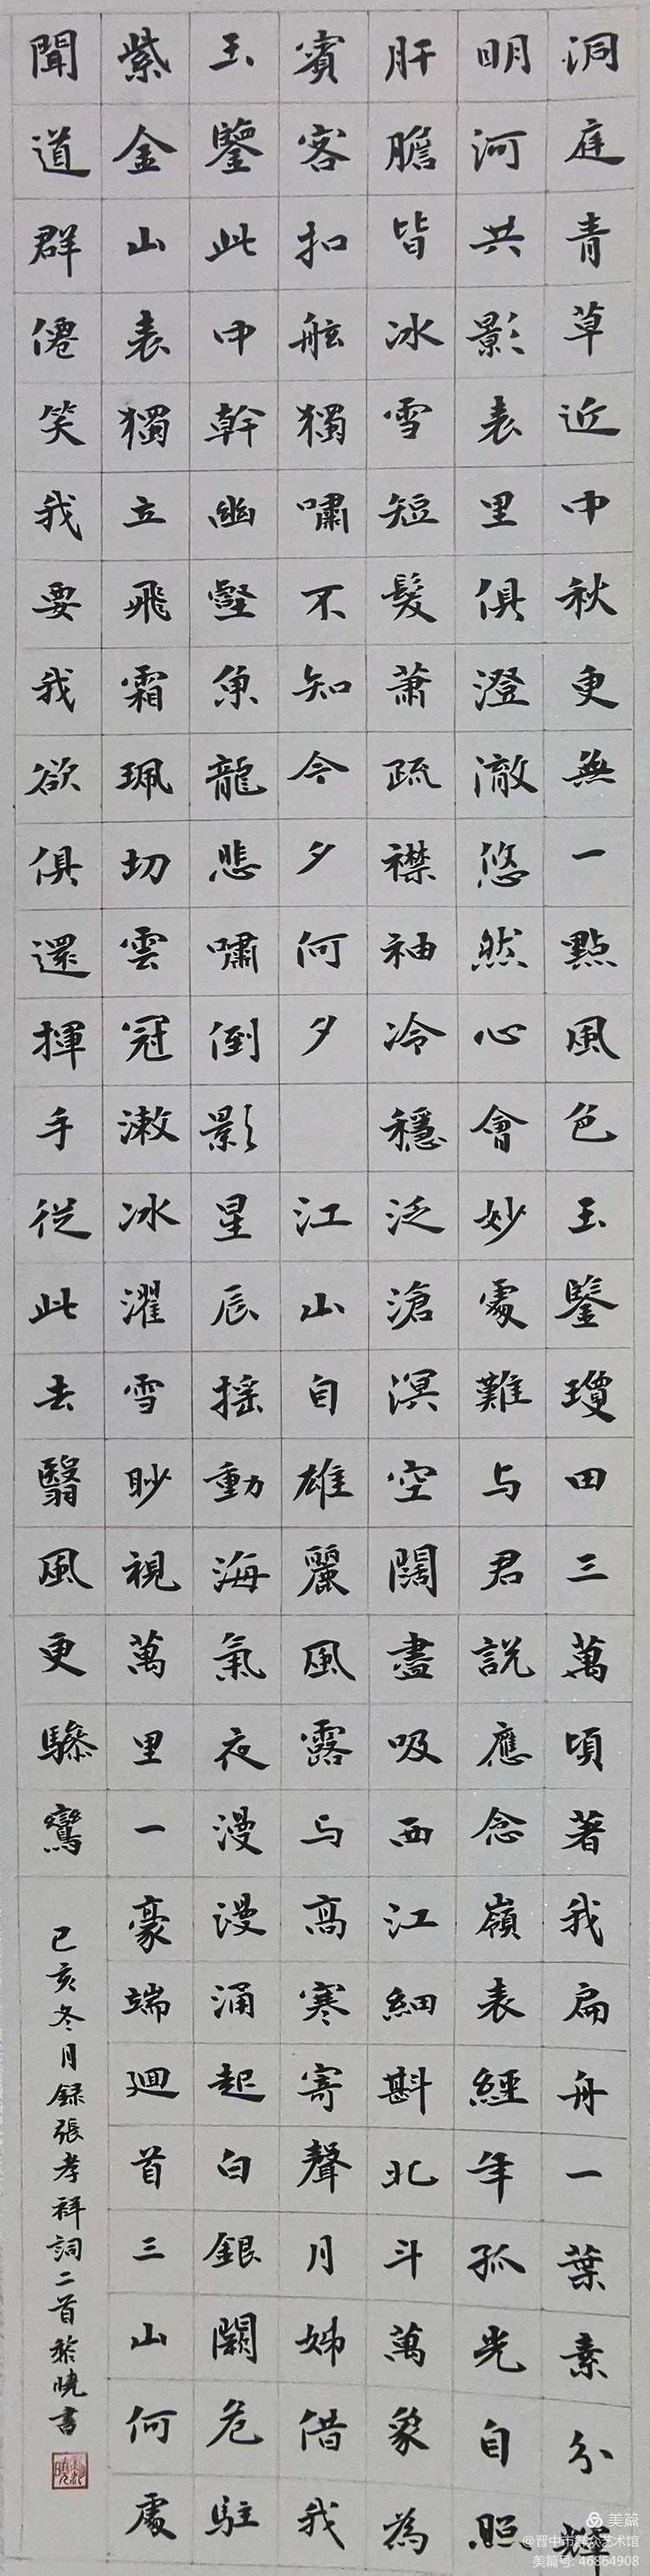 洞庭青草近中秋更無一點風色玉鑒瓊田三萬頃著我扁舟一葉素分輝
明河共影表里俱澄澈悠然心會妙處難与君説應念嶺表經年孤光自照
肝膽皆冰雪短髮蕭疏襟袖冷穩泛滄溟空闊盡吸西江細斟北斗萬象為
賓客扣舷獨嘯不知今夕何夕 江山自雄麗風露与高寒寄聲月姊借我
玉鑒此中幹幽壑魚龍悲嘯倒影星辰搖動海氣夜漫漫涌起白銀闕危駐
紫金山表獨立飛霜珮切雲冠漱冰濯雪眇視萬里一豪端廻首三山何處
聞道群僊笑我要我欲俱還揮手從此去翳風更驂鸞
己亥冬月録張孝祥詞二首 曉書
美篇
@晋中市群众艺术馆
美篇号: 46864908